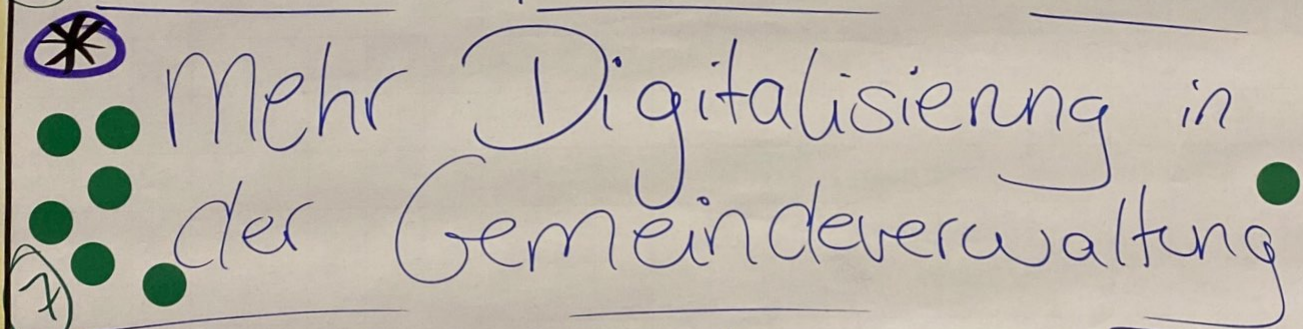 Mehr Digitalisierung in
der Gemeindeverwaltung
7